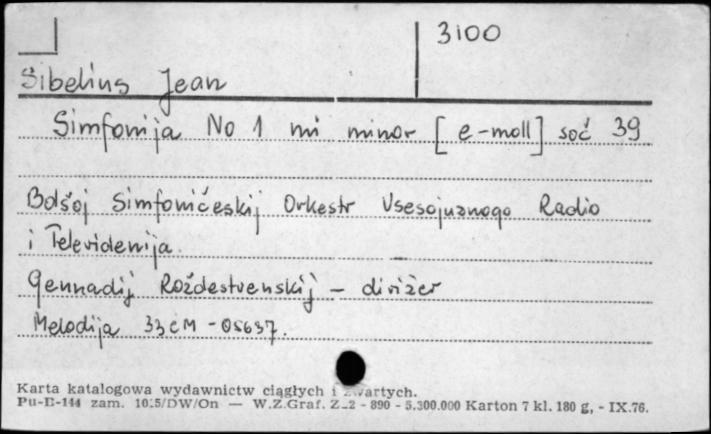 3100
Sibelius Jean
Simfonija No 1 mi minor [e-moll] soč 39
Bolšoj Simfoničeskij Orkestr Vsesojuznogo Radio
i Televidenija.
Gennadij Roždestvenskij - dirižer
Melodija 33CM-05637.
Karta katalogowa wydawnictw ciągłych i zwartych.
Pu-E-144 zam. 1015/DW/On — W.Z.Graf. Z-2 - 890 - 5.300.000 Karton 7 kl. 180 g, - IX.76.